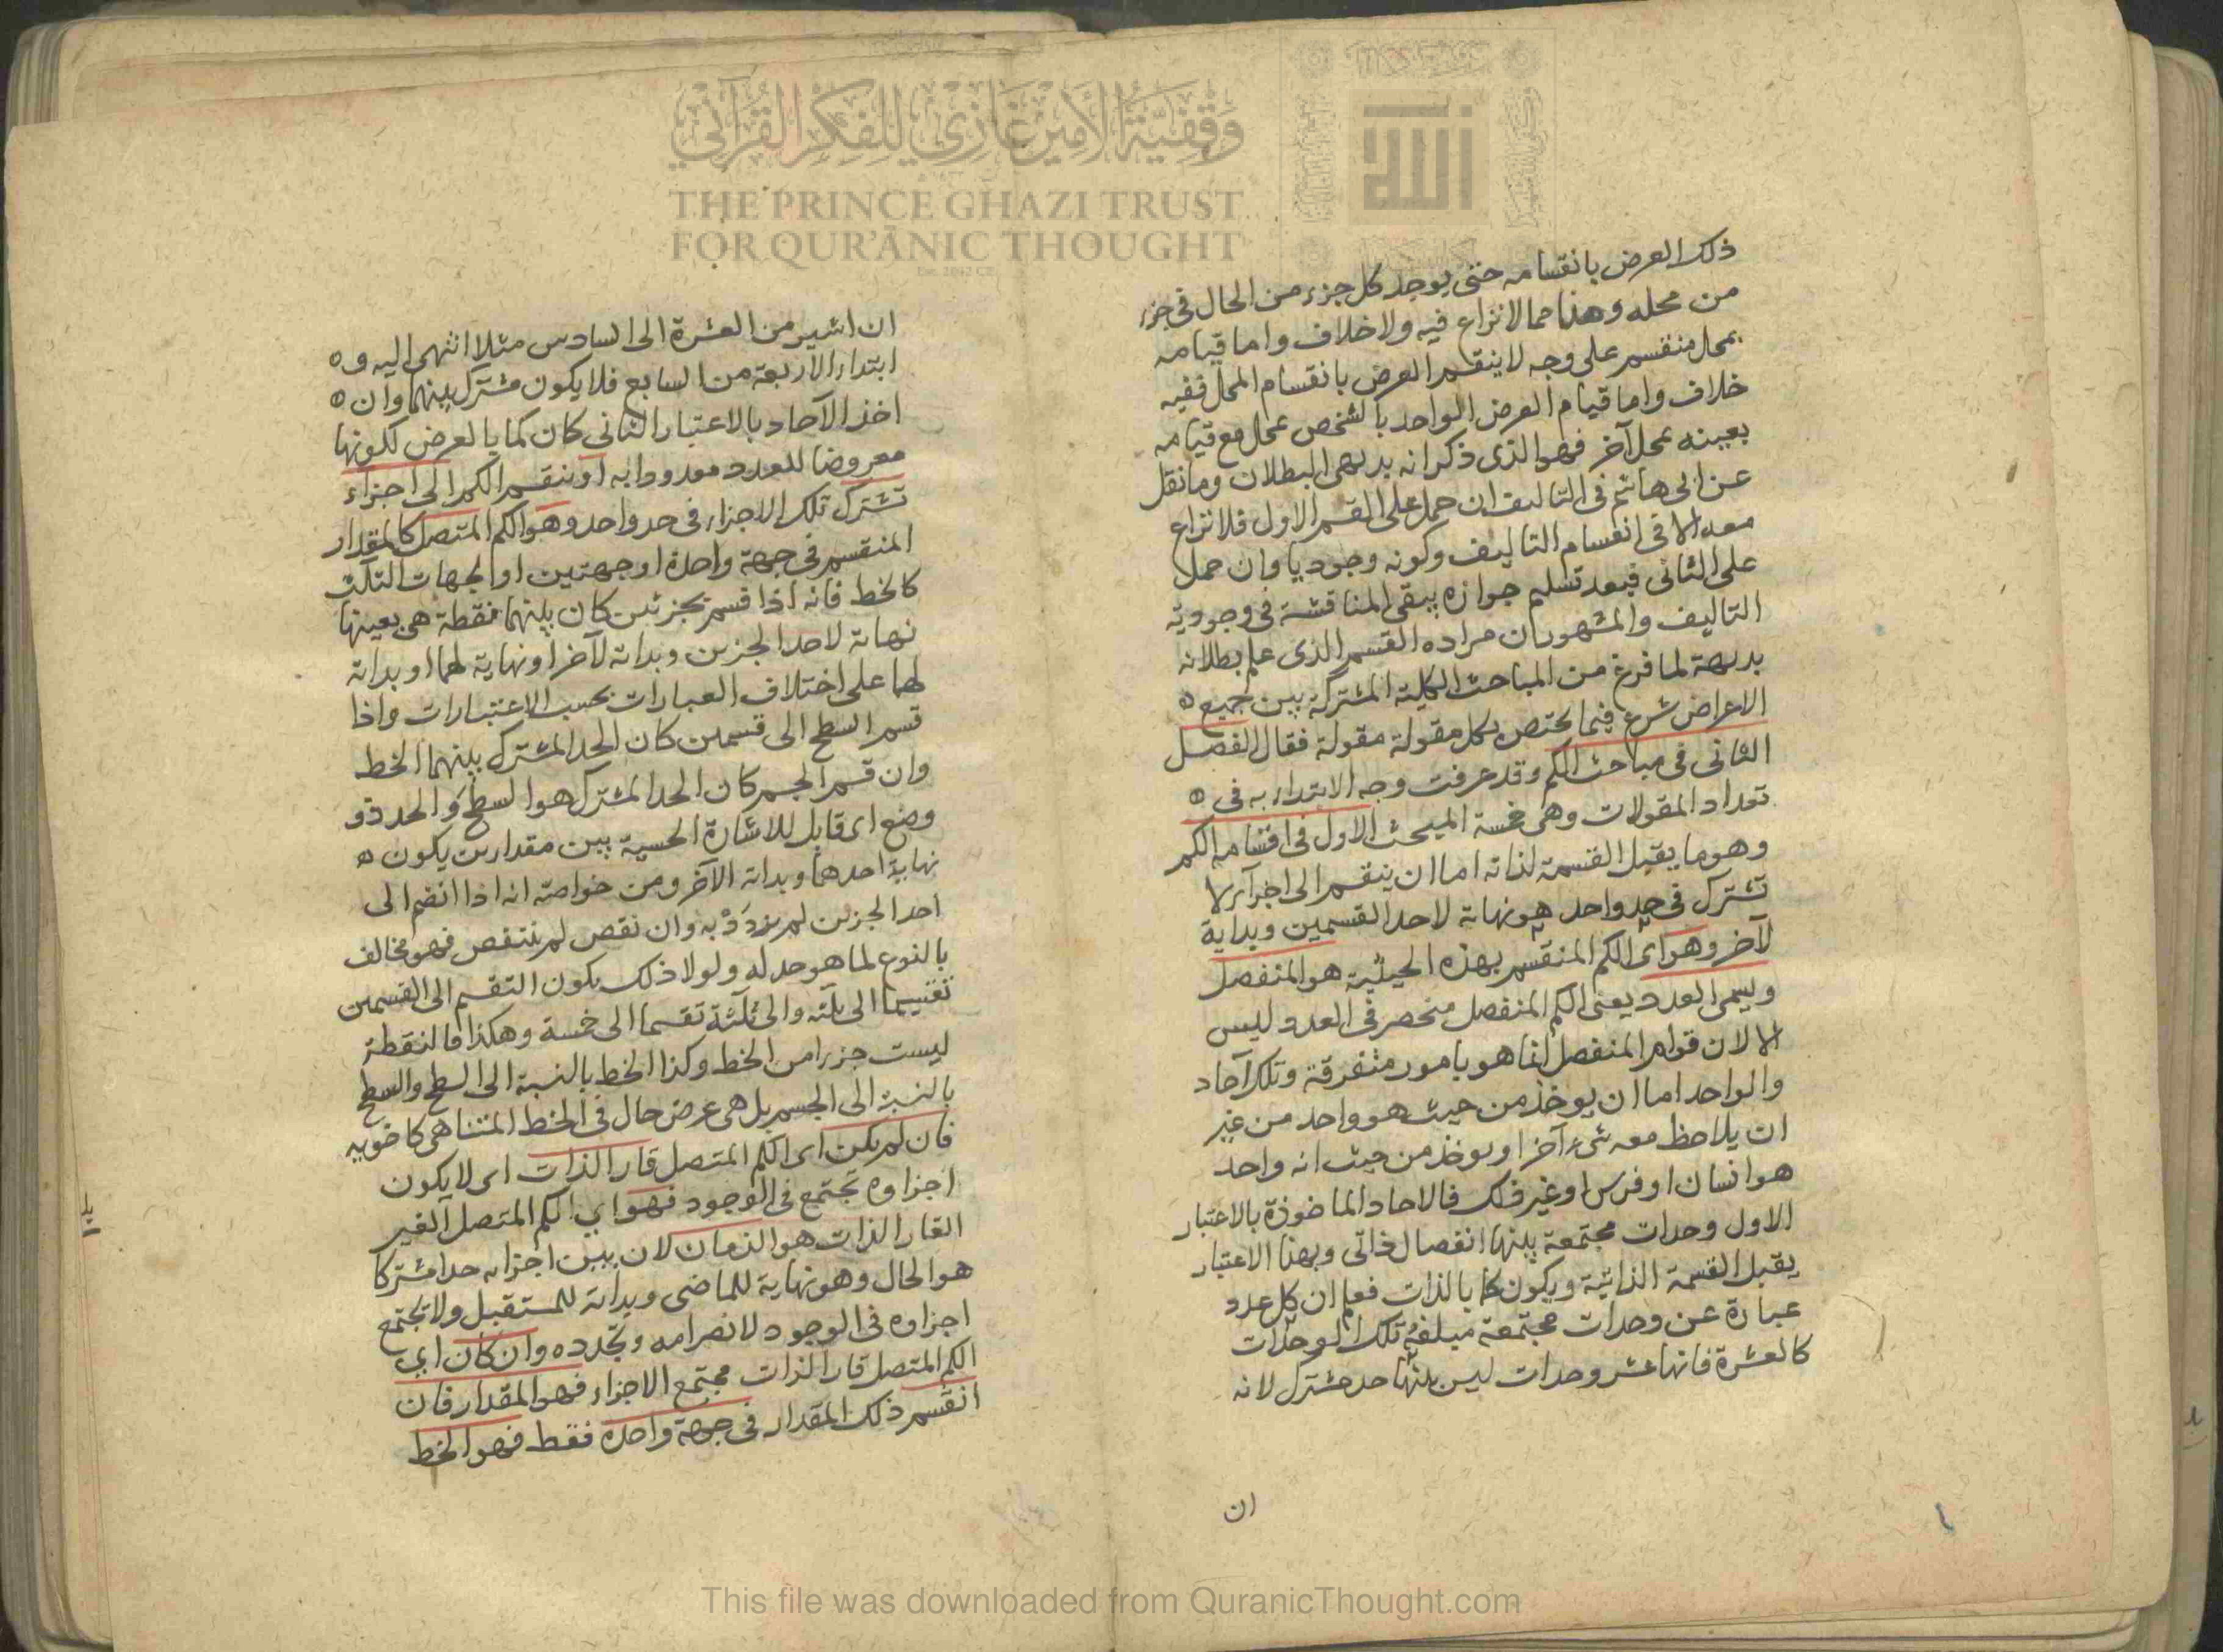 وقفية الأمير غازي للفكر القرآني
THE PRINCE GHAZI TRUST
FOR QUR'ĀNIC THOUGHT
الله
ذلك العرض بانقسامه حتى يوجد كل جزء من الحال فى جزء
من محله وهذا مما لا نزاع فيه ولا خلاف واما قيامه
بمحل منقسم على وجه لا ينقسم العرض بانقسام المحل ففيه
خلاف واما قيام العرض الواحد بالشخص بمحل مع قيامه
بعينه بمحل آخر فهو الذى ذكر انه بديهى البطلان وما نقل
عن ابى هاشم فى التاليف ان حمل على القسم الاول فلا نزاع
معه الا فى انقسام التاليف وكونه وجوديا وان حمل
على الثانى فبعد تسليم جوازه يبقى المناقشة فى وجودية
التاليف والمشهور ان مراده القسم الذى علم بطلانه
بديهة لما فرغ من المباحث الكلية المشتركة بين جميع
الاعراض شرع فيما يختص بكل مقولة مقولة فقال الفصل
الثانى فى مباحث الكم وقد عرفت وجه الابتداء به فى
تعداد المقولات وهى خمسة المبحث الاول فى اقسامه الكم
وهو ما يقبل القسمة لذاته اما ان ينقسم الى اجزآء لا
تشترك فى حد واحد هو نهاية لاحد القسمين وبداية
لآخر وهو اى الكم المنقسم بهذه الحيثية هو المنفصل
ويسمى العدد يعنى الكم المنفصل منحصر فى العدد ليس
الا لان قوام المنفصل انما هو بامور متفرقة وتلك آحاد
والواحد اما ان يوخذ من حيث هو واحد من غير
ان يلاحظ معه شئ آخر او يوخذ من حيث انه واحد
هو انسان او فرس او غير ذلك فالاحاد الماخوذة بالاعتبار
الاول وحدات مجتمعة بينها انفصال ذاتى وبهذا الاعتبار
يقبل القسمة الذاتية ويكون كما بالذات فعلم ان كل عدد
عبارة عن وحدات مجتمعة مبلغه تلك الوحدات
كالعشرة فانها عشر وحدات ليس بينها حد مشترك لانه
ان
ان اشير من العشرة الى السادس مثلا انتهى اليه و
ابتداء الاربعة من السابع فلا يكون مشترك بينهما وان
اخذ الآحاد بالاعتبار الثانى كان كما بالعرض لكونها
معروضا للعدد معدودا به او ينقسم الكم الى اجزاء
تشترك تلك الاجزاء فى حد واحد وهو الكم المتصل كالمقدار
المنقسم فى جهة واحدة او جهتين او الجهات الثلث
كالخط فانه اذا قسم بجزئين كان بينهما نقطة هى بعينها
نهاية لاحد الجزئين وبداية لآخر او نهاية لهما او بداية
لهما على اختلاف العبارات بحسب الاعتبارات واذا
قسم السطح الى قسمين كان الحد المشترك بينهما الخط
وان قسم الجسم كان الحد المشترك هو السطح والحد ذو
وضع اى قابل للاشارة الحسية بين مقدارين يكون
نهاية احدهما وبداية الآخر ومن خواصه انه اذا انضم الى
احد الجزئين لم يزدد به وان نقص لم ينتقص فهو مخالف
بالنوع لما هو حد له ولولا ذلك يكون التقسيم الى القسمين
تقسيما الى ثلثة والى ثلثة تقسيما الى خمسة وهكذا فالنقطة
ليست جزءا من الخط وكذا الخط بالنسبة الى السطح والسطح
بالنسبة الى الجسم بل هى عرض حال فى الخط المتناهى كاخويه
فان لم يكن اى الكم المتصل قار الذات اى لا يكون
اجزاوه تجتمع فى الوجود فهو اي الكم المتصل الغير
القار الذات هو الزمان لان بين اجزائه حدا مشتركا
هو الحال وهو نهاية للماضى وبداية للمستقبل ولا تجتمع
اجزاوه فى الوجود لانصرامه وتجدده وان كان اي
الكم المتصل قار الذات مجتمع الاجزاء فهو المقدار فان
انقسم ذلك المقدار فى جهة واحدة فقط فهو الخط
This file was downloaded from QuranicThought.com